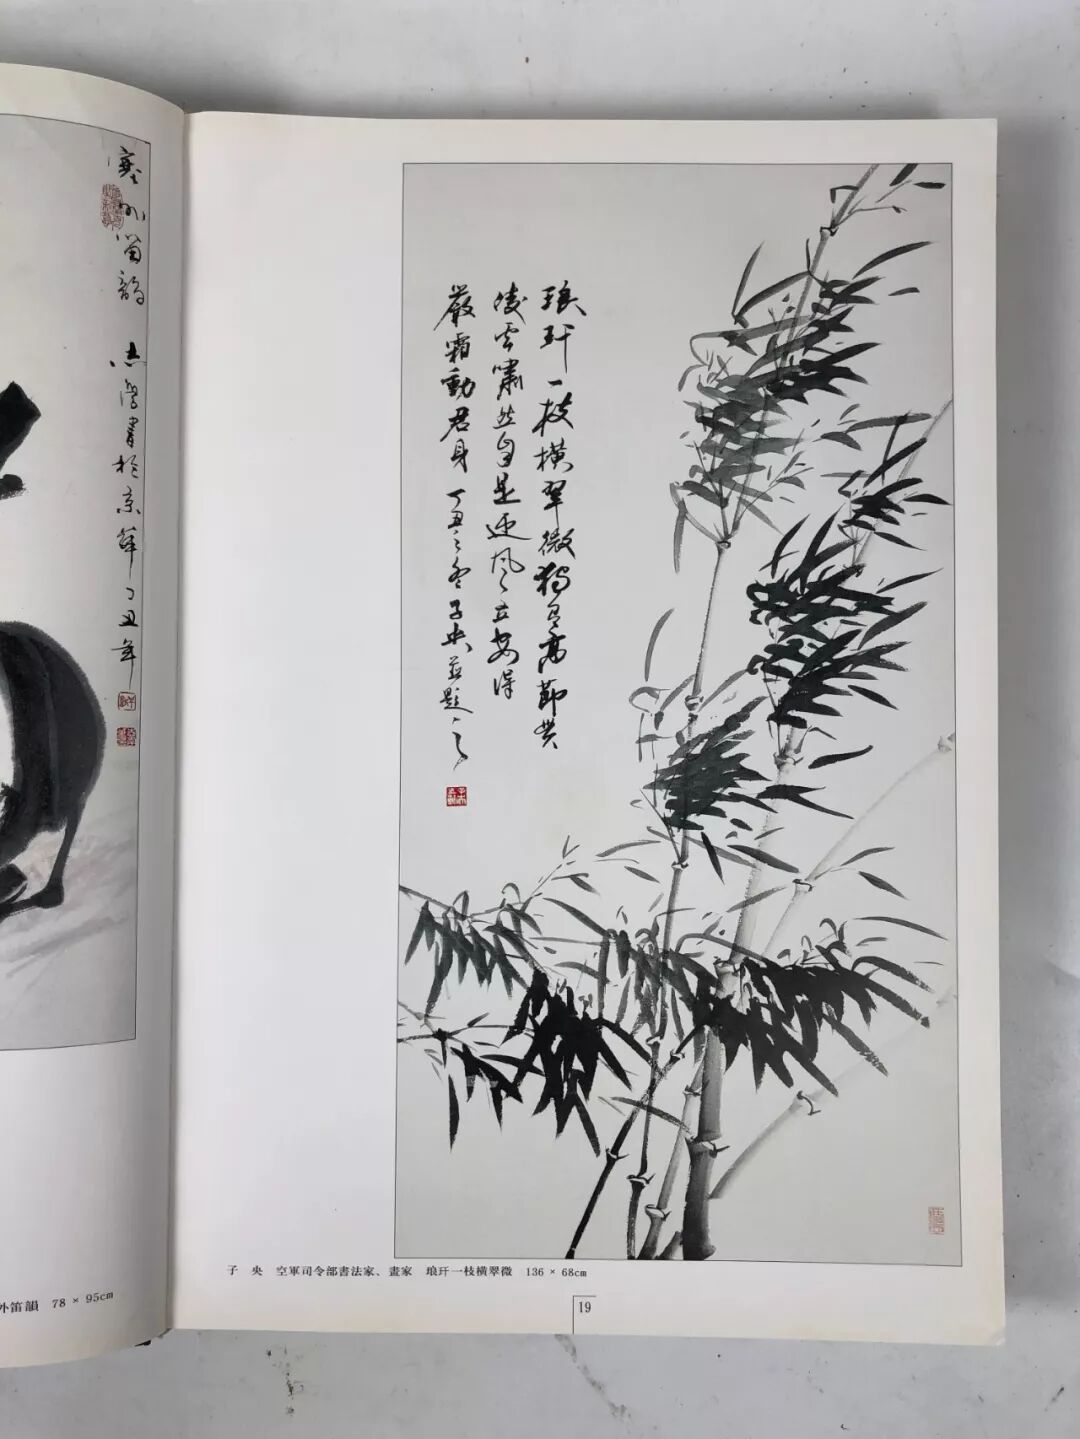 塞外笛韻 志學書於京華丁丑年
外笛韻 78 × 95cm
琅玕一枝橫翠微獨具高節共
凌雲嘯然自是迎風立安得
嚴霜動君身 丁丑之冬子央並題之
子 央 空軍司令部書法家、畫家 琅玕一枝橫翠微 136 × 68cm
19